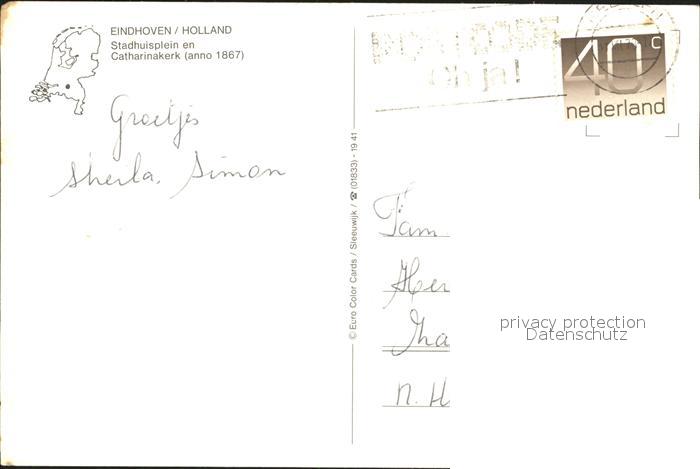 EINDHOVEN / HOLLAND
Stadhuisplein en
Catharinakerk (anno 1867)
Oh ja!
40c
nederland
Groetjes
Sheila. Simon
© Euro Color Cards / Sleeuwijk / ☎ (01833) - 19 41
Fam
Her
N. H
privacy protection
Datenschutz